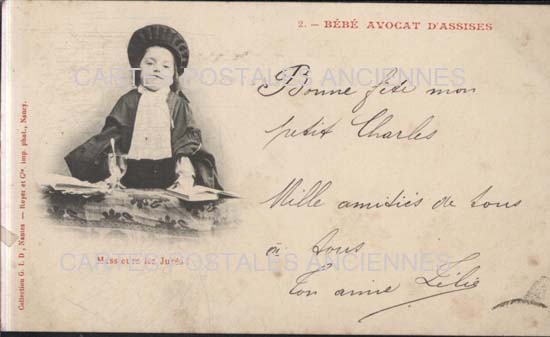 2. — BÉBÉ AVOCAT D'ASSISES
CARTES POSTALES ANCIENNES
Bonne fête mon
petit Charles
Mille amitiés de tous
à tous
Ton amie Lélie
Messieurs les Jurés
CARTES POSTALES ANCIENNES
Collection G. I. D., Nantes — Royer et Cie, imp. phot., Nancy.